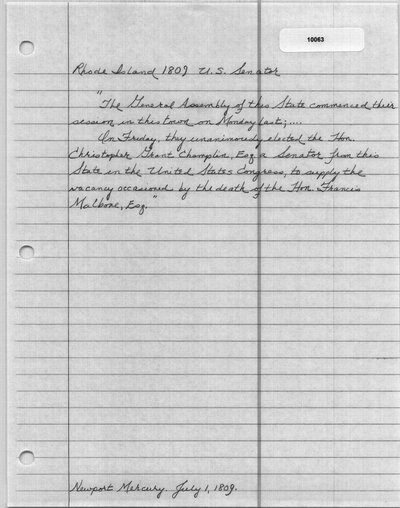 10063
Rhode Island 1809 U.S. Senator
"The General Assembly of this State commenced their
session in this town on Monday last;....
On Friday, they unanimously elected the Hon.
Christopher Grant Champlin, Esq. a Senator from this
State in the United States Congress, to supply the
vacancy occasioned by the death of the Hon. Francis
Malbone, Esq."
Newport Mercury. July 1, 1809.